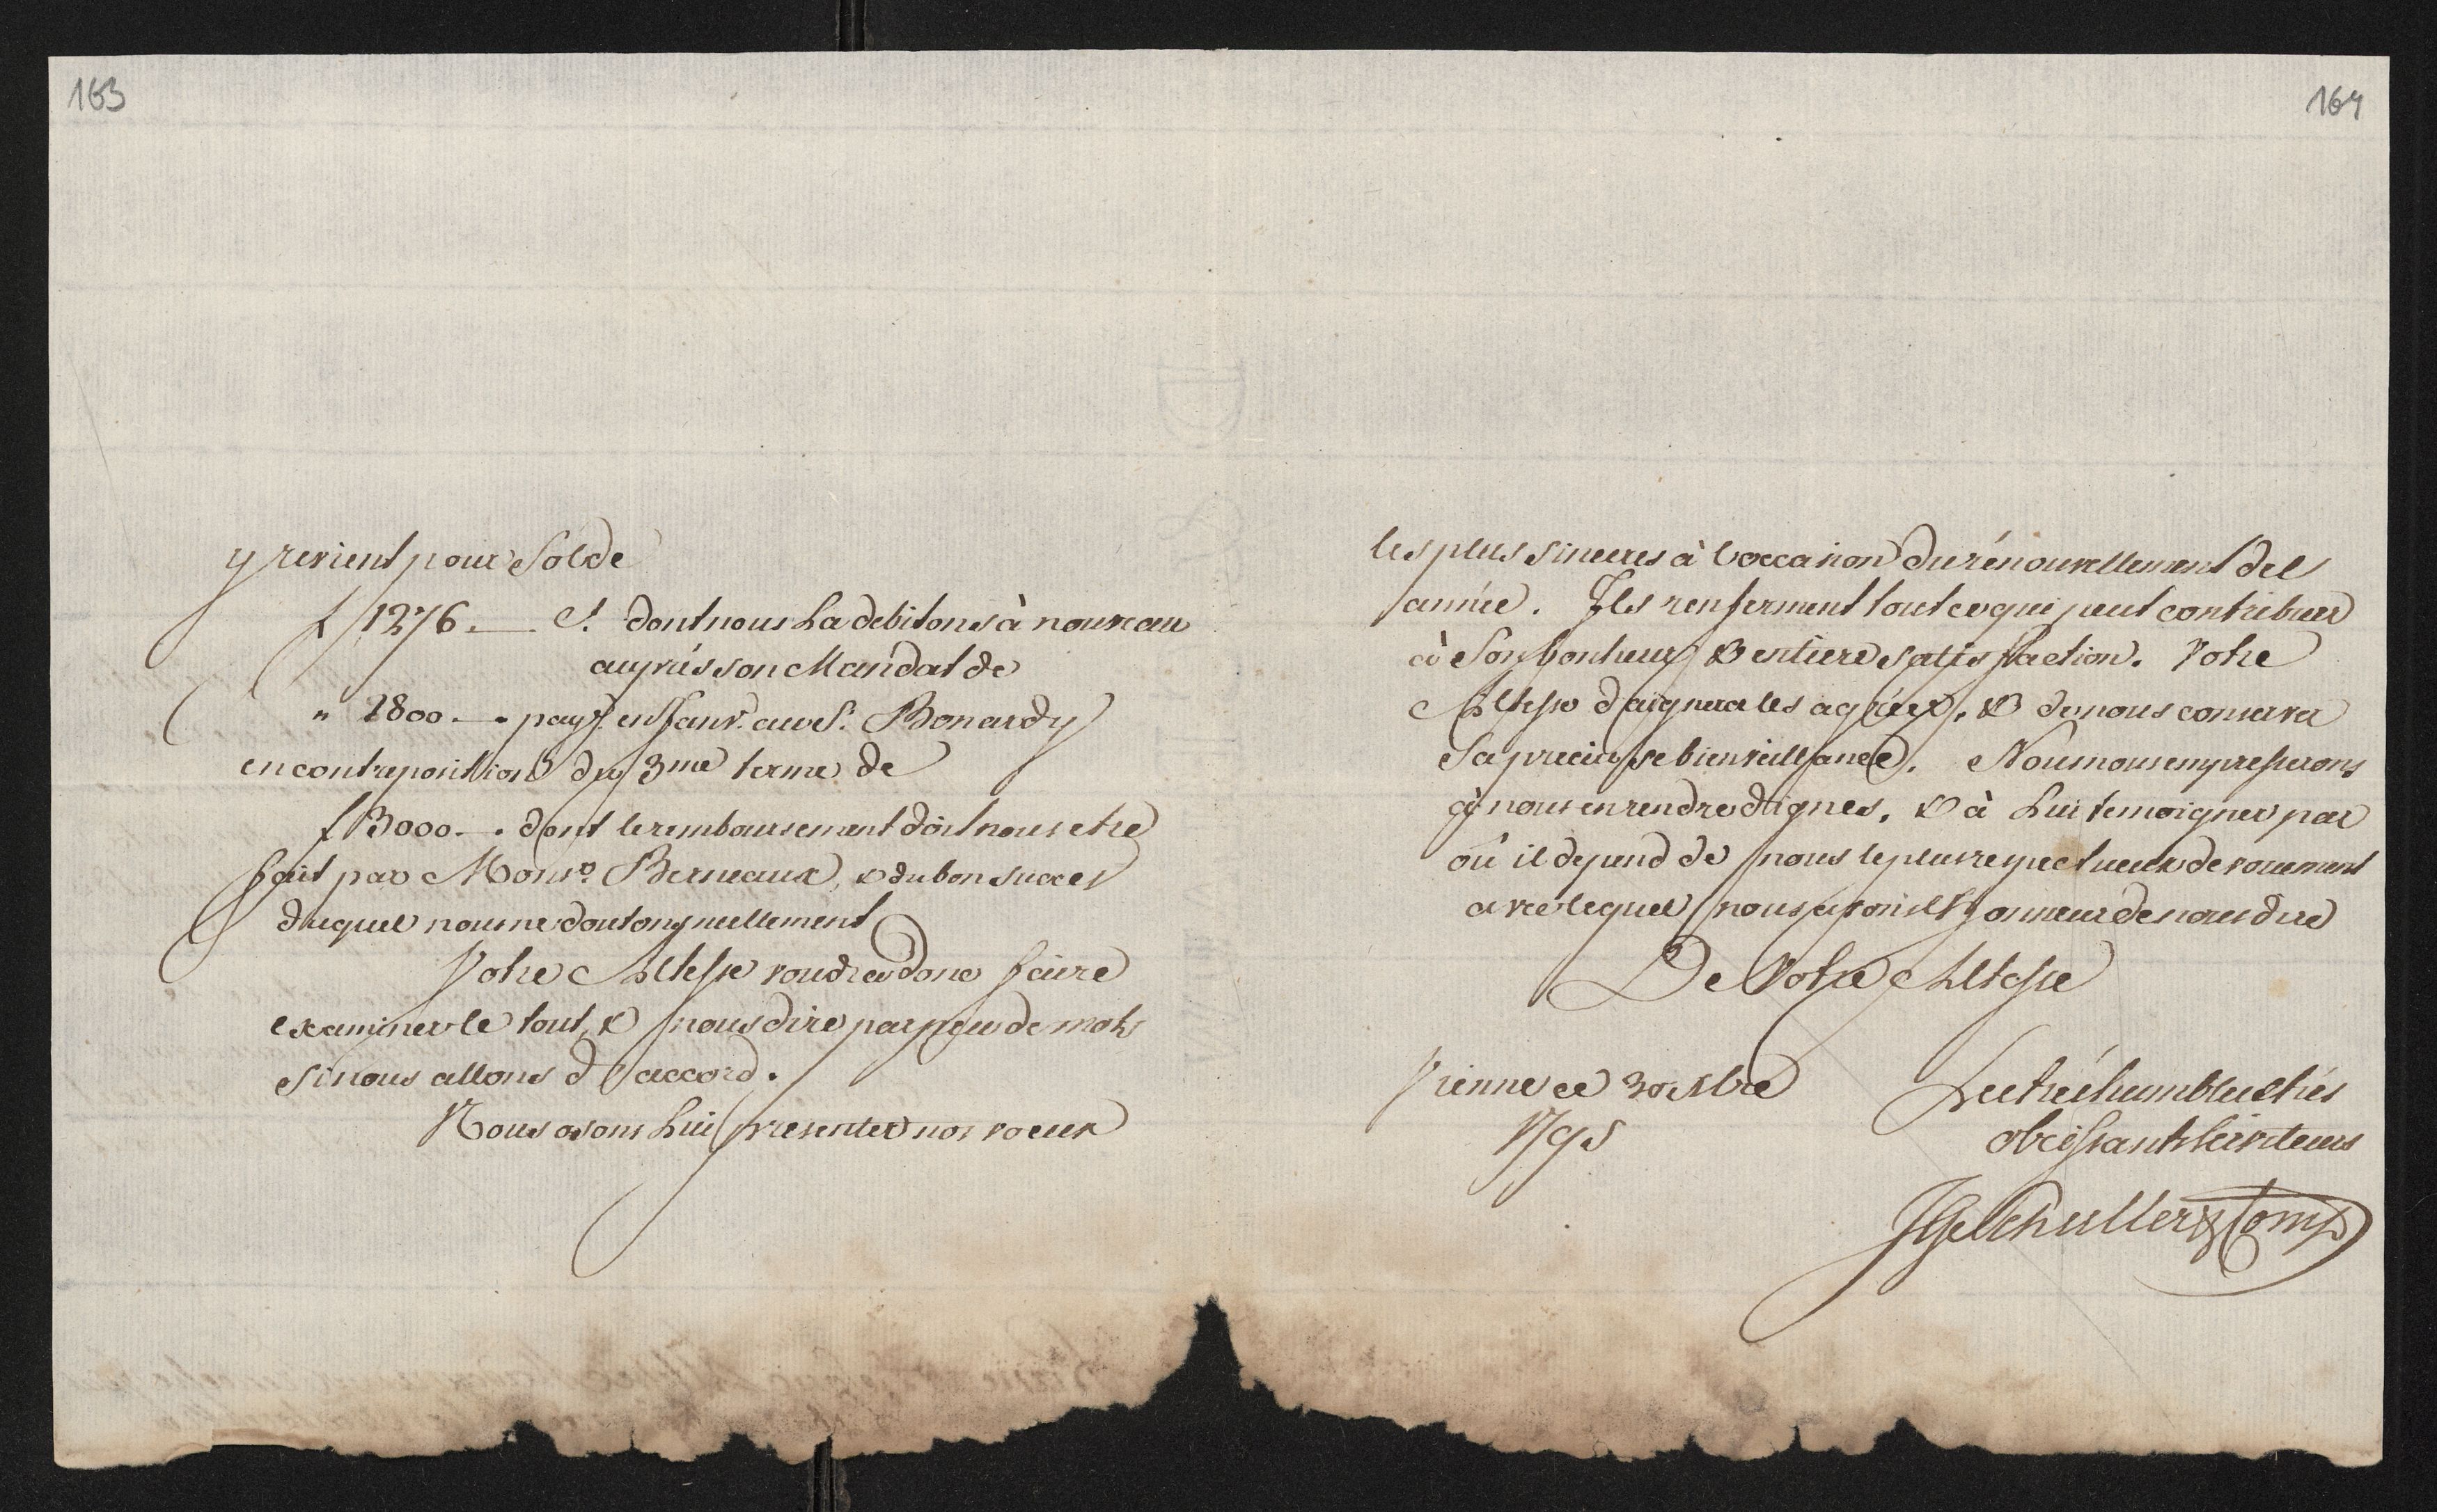 163
y revient pour Solde
f 1276.— S. dont nous La debitons à nouveau
auprès son Mandat de
" 1800.—. payé en Janv. au S. Bonardy
en contreposition du 3me terme de
f 3000.—. dont le remboursement doit nous etre
fait par Monsr. Berneaux, & du bon succes
duquel nous ne doutons nullement
Votre Altesse voudra donc faire
examiner le tout, & nous dire par peu de mots
si nous allons d'accord.
Nous osons Lui presenter nos voeux
164
les plus sinceres à l'occasion du rénouvellement de l'
année. Ils renferment tout ce qui peut contribuer
à Son bonheur & entiere satisfaction. Votre
Altesse daignera les agréer, & de nous conserver
Sa precieuse bienveillance. Nous nous empresserons
à nous en rendre dignes, & à Lui temoigner par
où il depend de nous le plus respectueux devouement
avec lequel nous avons l'honneur de nous dire
De Votre Altesse
Vienne ce 30 Xbre
1795
Les très humbles & très
obeissants serviteurs
Schuller & Comp